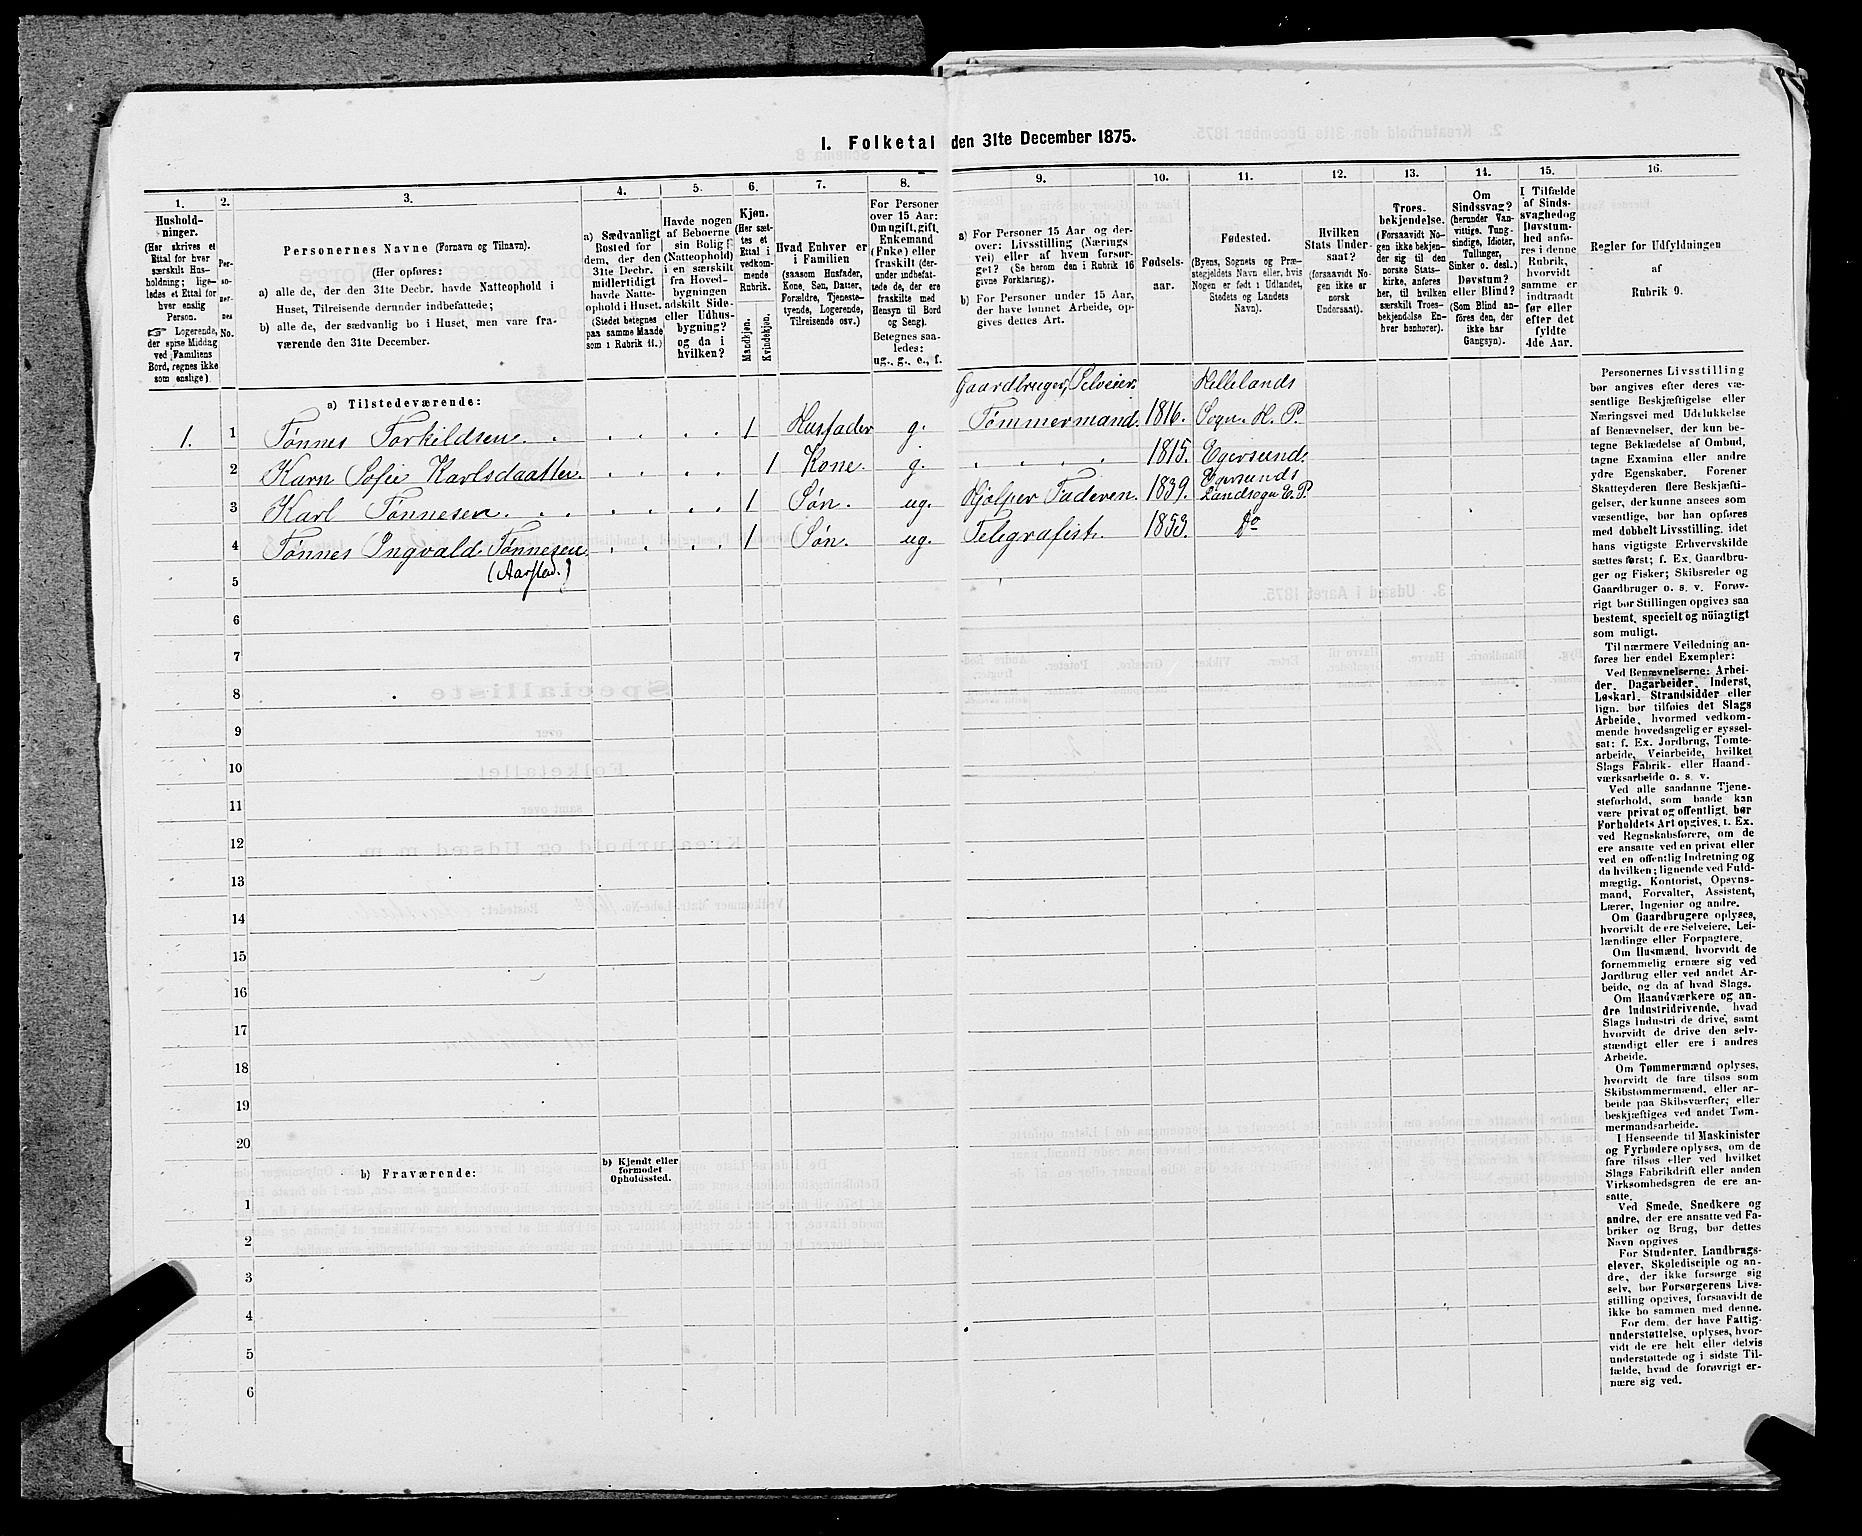 I. Folketal den 31te December 1875.
1. 2. 3. 4. 5. 6. 7. 8. 9. 10. 11. 12. 13. 14. 15. 16.
Hushold-
ninger.
(Her skrives et
Ettal for hver
særskilt Hus-
holdning; lige-
ledes et Ettal for
hver enslig
Person.
☞ Logerende,
der spise Middag
ved Familiens
Bord, regnes ikke
som enslige).
Per-
so-
ner-
nes
No.
Personernes Navne (Fornavn og Tilnavn).
(Her opføres:
a) alle de, der den 31te Decbr. havde Natteophold i
Huset, Tilreisende derunder indbefattede;
b) alle de, der sædvanlig bo i Huset, men vare fra-
værende den 31te December.
a) Sædvanligt
Bosted for
dem, der den
31te Decbr.
midlertidigt
havde Natte-
ophold i Huset.
(Stedet betegnes
paa samme Maade
som i Rubrik 11.)
Havde nogen
af Beboerne
sin Bolig
(Natteophold)
i en særskilt
fra Hoved-
bygningen
adskilt Side-
eller Udhus-
bygning?
og da i
hvilken?
Kjøn.
(Her sæt-
tes et
Ettal i
vedkom-
mende
Rubrik.
Mandkjøn.
Kvindekjøn.
Hvad Enhver er
i Familien
(saasom Husfader,
Kone, Søn, Datter,
Forældre, Tjeneste-
tyende, Logerende,
Tilreisende osv.)
For Personer
over 15 Aar:
Om ugift, gift,
Enkemand
(Enke) eller
fraskilt (der-
under indbefat-
tede de, der ere
fraskilte med
Hensyn til Bord
og Seng).
Betegnes saa-
ledes:
ug., g., e., f.
a) For Personer 15 Aar og der-
over: Livsstilling (Nærings
vei) eller af hvem forsør-
get? (Se herom den i Rubrik 16
givne Forklaring).
b) For Personer under 15 Aar,
der have lønnet Arbeide, op-
gives dettes Art.
Fødsels-
aar.
Fødested.
(Byens, Sognets og Præ-
stegjeldets Navn eller, hvis
Nogen er født i Udlandet,
Stedets og Landets
Navn).
Hvilken
Stats Under-
saat?
(forsaavidt No-
gen ikke er
norsk
Undersaat).
Troes-
bekjendelse.
(Forsaavidt No-
gen ikke bekjen-
der sig til den
norske Stats-
kirke, anføres
her, til hvilken
særskilt Troes-
bekjendelse En-
hver henhører).
Om
Sindssvag?
(herunder Van-
vittige, Tung-
sindige, Idioter,
Tullinger,
Sinker o. desl.)
Døvstum?
eller Blind?
(Som Blind an-
føres den, der
ikke har
Gangsyn).
I Tilfælde
af Sinds-
svaghed og
Døvstum-
hed anfø-
res i denne
Rubrik,
hvorvidt
samme er
indtraadt
før eller
efter det
fyldte
4de Aar.
Regler for Udfyldningen
af
Rubrik 9.
a) Tilstedeværende:
Gaardbruger, Selveier. Hellelands
1. 1 Tønnes Torkildsen 1 Husfader g. Tømmermand. 1816. Sogn. H. P.
2 Karn Sofie Karlsdaatter 1 Kone. g. 1815. Egersund.
3 Karl Tønnesen 1 Søn. ug. Hjælper Faderen. 1839. Egersunds Landsogn E. P.
4 Tønnes Ingvald Tønnesen 1 Søn. ug. Telegrafist. 1853. Do
(Aarstad.)
5
6
7
8
9
10
11
12
13
14
15
16
17
18
19
20
b) Fraværende:
b) Kjendt eller
formodet
Opholdssted.
1
2
3
4
5
6
Personernes Livsstilling
bør angives efter deres væ-
sentlige Beskjæftigelse eller
Næringsvei med Udelukkelse
af Benævnelser, der kun be-
tegne Beklædelse af Ombud,
tagne Examina eller andre
ydre Egenskaber. Forener
Skatteyderen flere Beskjæfti-
gelser, der kunne ansees som
væsentlige, bør han opføres
med dobbelt Livsstilling, idet
hans vigtigste Erhvervskilde
sættes først; f. Ex. Gaardbru-
ger og Fisker; Skibsreder og
Gaardbruger o. s. v. Forøv-
rigt bør Stillingen opgives saa
bestemt, specielt og nöiagtigt
som muligt.
Til nærmere Veiledning an-
føres her endel Exempler:
Ved Benævnelserne: Arbei-
der, Dagarbeider, Inderst,
Løskarl, Strandsidder eller
lign. bør tilføies det Slags
Arbeide, hvormed vedkom-
mende hovedsagelig er syssel-
sat; f. Ex. Jordbrug, Tomte-
arbeide, Veiarbeide, hvilket
Slags Fabrik- eller Haand-
værksarbeide o. s. v.
Ved alle saadanne Tjene-
steforhold, som baade kan
være privat og offentligt, bør
Forholdets Art opgives, t. Ex.
ved Regnskabsførere, om de
ere ansatte ved en privat eller
ved en offentlig Indretning og
da hvilken; lignende ved Fuld-
mægtig, Kontorist, Opsyns-
mand, Forvalter, Assistent,
Lærer, Ingeniør og andre.
Om Gaardbrugere oplyses,
hvorvidt de ere Selveiere, Lei-
lændinge eller Forpagtere.
Om Husmænd, hvorvidt de
fornemmelig ernære sig ved
Jordbrug eller ved andet Ar-
beide, og da af hvad Slags.
Om Haandværkere og an-
dre Industridrivende, hvad
Slags Industri de drive, samt
hvorvidt de drive den selv-
stændigt eller ere i andres
Arbeide.
Om Tømmermænd oplyses,
hvorvidt de fare tilsøs som
Skibstømmermænd, eller ar-
beide paa Skibsværfter; eller
beskjæftiges ved andet Tøm-
mermandsarbeide.
I Henseende til Maskinister
og Fyrbødere oplyses, om de
fare tilsøs eller ved hvilket
Slags Fabrikdrift eller anden
Virksomhedsgren de ere an-
satte.
Ved Smede, Snedkere og
andre, der ere ansatte ved Fa-
briker og Brug, bør dettes
Navn opgives
For Studenter, Landbrugs-
elever, Skoledisciple og an-
dre, der ikke forsørge sig
selv, bør Forsørgerens Livs-
stilling opgives, forsaavidt de
ikke bo sammen med denne.
For dem, der have Fattig-
understøttelse, oplyses, hvor-
vidt de ere helt eller delvis
understøttede og i sidste Til-
fælde, hvad de forøvrigt er-
nære sig ved.